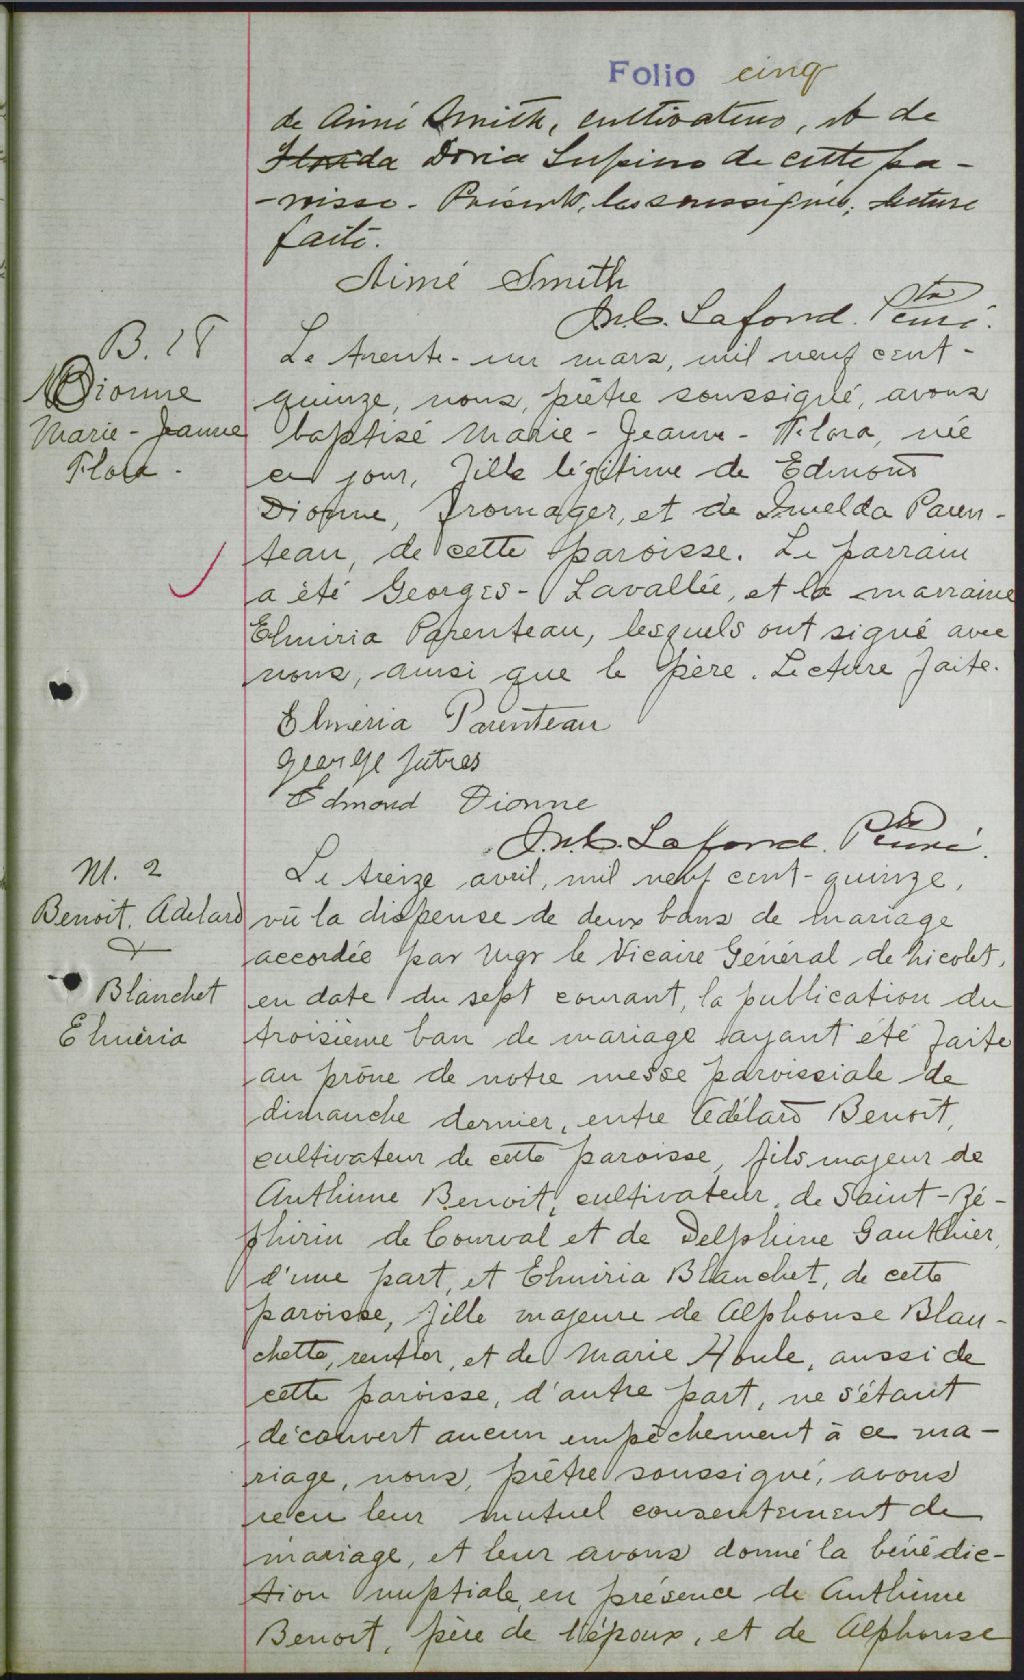 Folio cinq
de Aimé Smith, cultivateur, et de
Florida Doria Lupien de cette pa-
-roisse. Présents, les soussignés; lecture
faite.
Aimé Smith
Lafond. Ptre Curé.
B. 18
Dionne
Marie-Jeanne
Flora.
Le trente-un mars, mil neuf cent-
quinze, nous, prêtre soussigné, avons
baptisé Marie-Jeanne-Flora, née
ce jour, fille légitime de Edmond
Dionne, fromager, et de Imelda Paren-
teau, de cette paroisse. Le parrain
a été Georges-Lavallée, et la marraine
Elmiria Parenteau, lesquels ont signé avec
nous, ainsi que le père. Lecture faite.
Elméria Parenteau
George Jutras
Edmond Dionne
Lafond. Ptre Curé.
M. 2
Benoit, Adélard
&
Blanchet
Elméria
Le treize avril, mil neuf cent-quinze,
vû la dispense de deux bans de mariage
accordée par Mgr le Vicaire Général de Nicolet,
en date du sept courant, la publication du
troisième ban de mariage ayant été faite
au prône de notre messe paroissiale de
dimanche dernier, entre Adélard Benoit,
cultivateur de cette paroisse, fils majeur de
Anthime Benoit, cultivateur, de Saint-Zé-
phirin de Courval et de Delphine Gauthier,
d'une part, et Elmiria Blanchet, de cette
paroisse, fille majeure de Alphonse Blan-
chette, rentier, et de Marie Houle, aussi de
cette paroisse, d'autre part, ne s'étant
découvert aucun empêchement à ce ma-
riage, nous, prêtre soussigné, avons
recu leur mutuel consentement de
mariage, et leur avons donné la bénédic-
tion nuptiale, en présence de Anthime
Benoit, père de l'époux, et de Alphonse